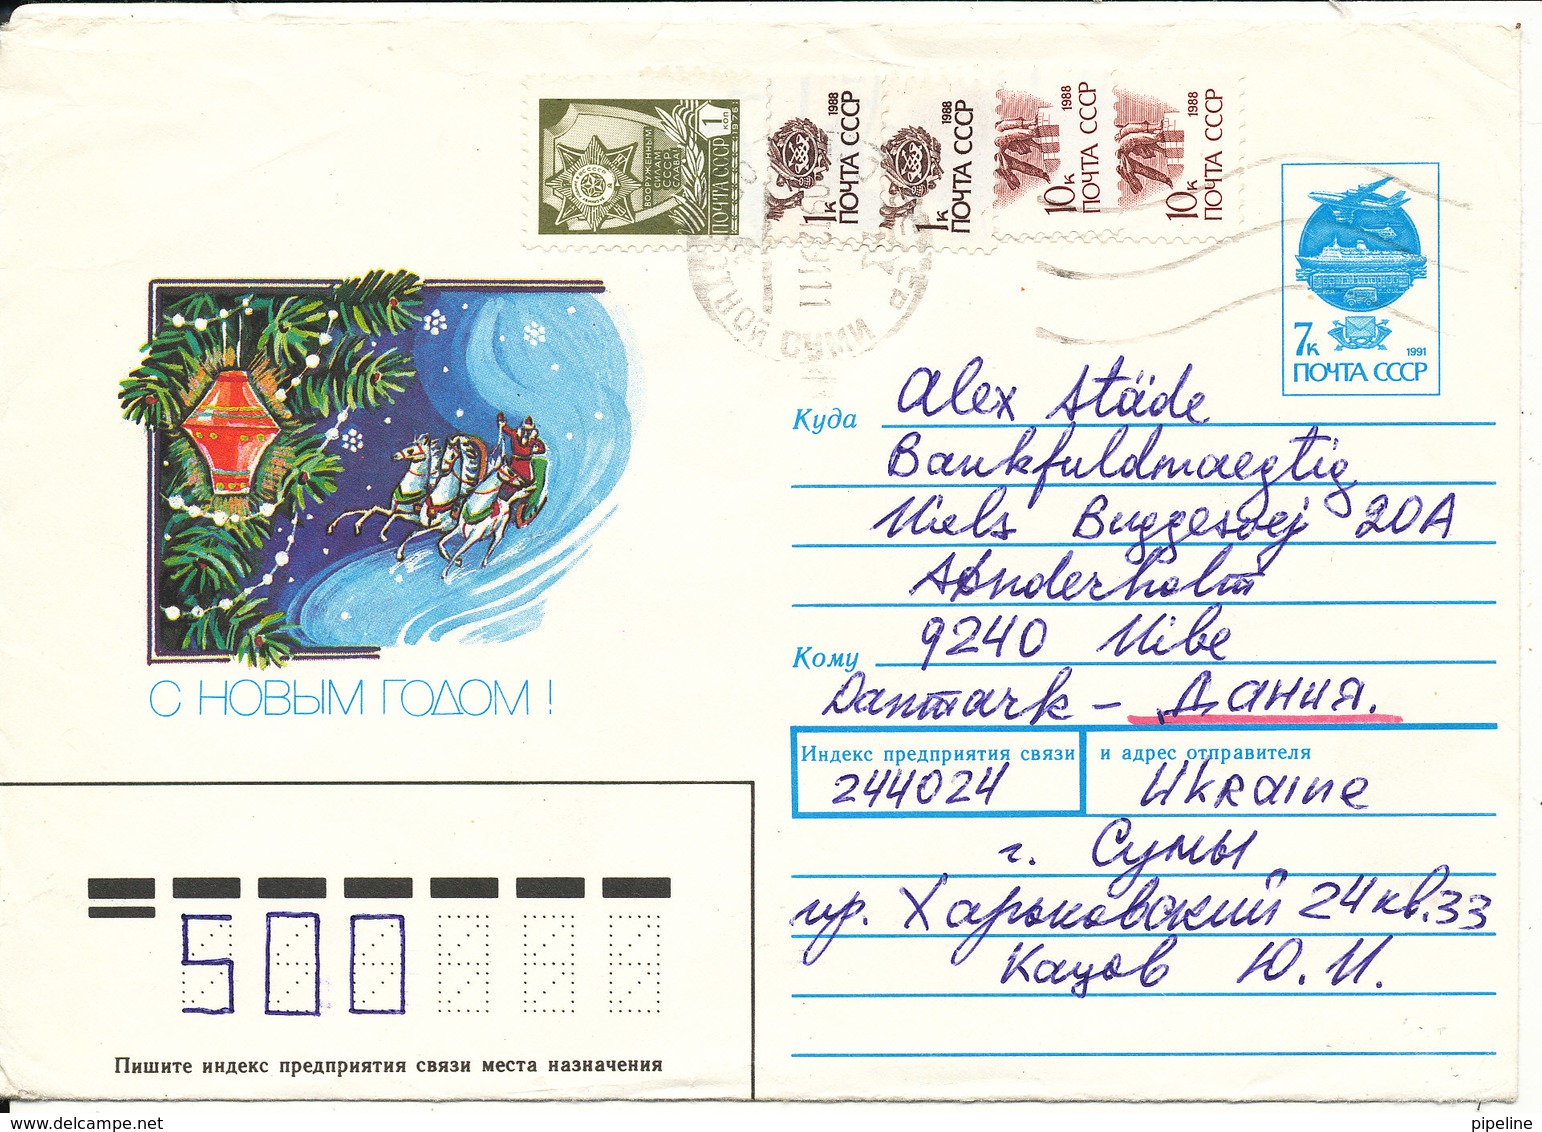 ВООРУЖЕННЫМ
СИЛАМ
СССР
СЛАВА!
1
КОП
1976
ПОЧТА СССР
1к
1988
ПОЧТА СССР
1к
1988
ПОЧТА СССР
10к
1988
ПОЧТА СССР
10к
1988
ПОЧТА СССР
СУМИ
7к
1991
ПОЧТА СССР
Куда
Alex Städe
Bankfuldmaegtig
Niels Buggesvej 20A
Sønderholm
9240 Nibe
Кому
Danmark - Дания.
С НОВЫМ ГОДОМ!
Индекс предприятия связи и адрес отправителя
244024 Ukraine
г. Сумы
пр. Харьковский 24 кв. 33
Кацов Ю. И.
500
Пишите индекс предприятия связи места назначения
delcampe.net
pipeline